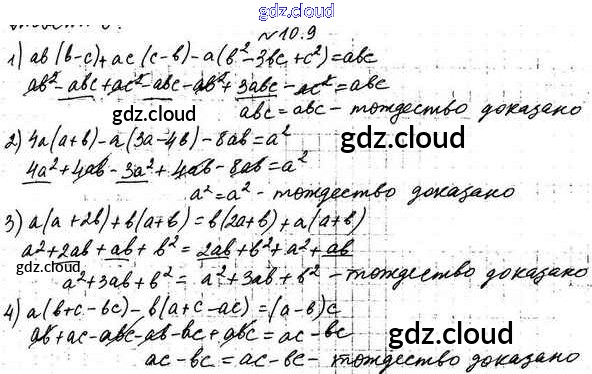 gdz.cloud
№10.9
1) ab(b-c)+ac(c-b)-a(b²-3bc+c²)=abc
ab²-abc+ac²-abc-ab²+3abc-ac²=abc
abc=abc - тождество доказано
gdz.cloud gdz.cloud
2) 4a(a+b)-a(3a-4b)-8ab=a²
4a²+4ab-3a²+4ab-8ab=a²
a²=a² - тождество доказано
3) a(a+2b)+b(a+b)=b(2a+b)+a(a+b)
a²+2ab+ab+b²=2ab+b²+a²+ab
gdz.cloud gdz.cloud
a²+3ab+b²=a²+3ab+b² - тождество доказано
4) a(b+c-bc)-b(a+c-ac)=(a-b)c
ab+ac-abc-ab-bc+abc=ac-bc
gdz.cloud
ac-bc=ac-bc - тождество доказано